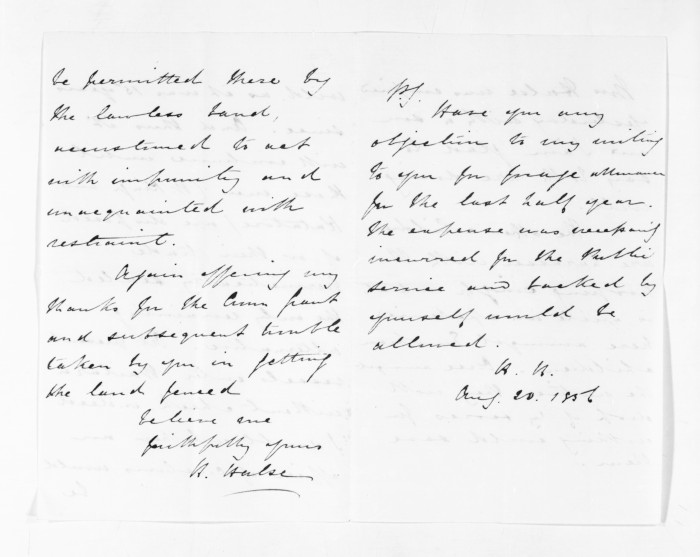 be permitted there by
the lawless band,
accustomed to act
with impunity and
unacquainted with
restraint.
Again offering my
thanks for the Crown Grant
and subsequent trouble
taken by you in getting
the land fenced
believe me
faithfully yours
H. Halse
PS.
Have you any
objection to my writing
to you for forage allowance
for the last half year.
The expense was necessarily
incurred for the Public
service and backed by
yourself would be
allowed.
H. H.
Aug. 20. 1856